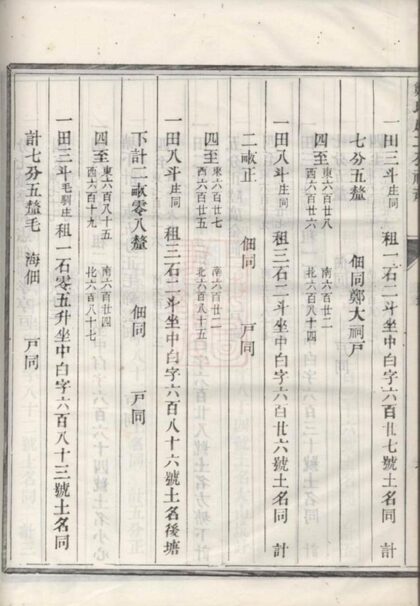 一田三斗庄同　租一石二斗坐中白字六百廿七號土名同　計
七分五釐　佃同鄭大祠戶
四至東六百廿八　南六百三二
西六百廿六　北六百廿二
一田八斗庄同　租三石二斗坐中白字六百廿六號土名同　計
二畝正　佃同　戶同
四至東六百廿七　南六百二
西六百廿五　北六百八十五
一田八斗庄同　租三石二斗坐中白字六百八十六號土名後塘
下計二畝零八釐　佃同　戶同
四至東六百八十五　南六百廿四
西六百十九　北六百八十七
一田三斗毛剔庄　租一石零五升坐中白字六百八十三號土名同
計七分五釐毛　海佃　戶同